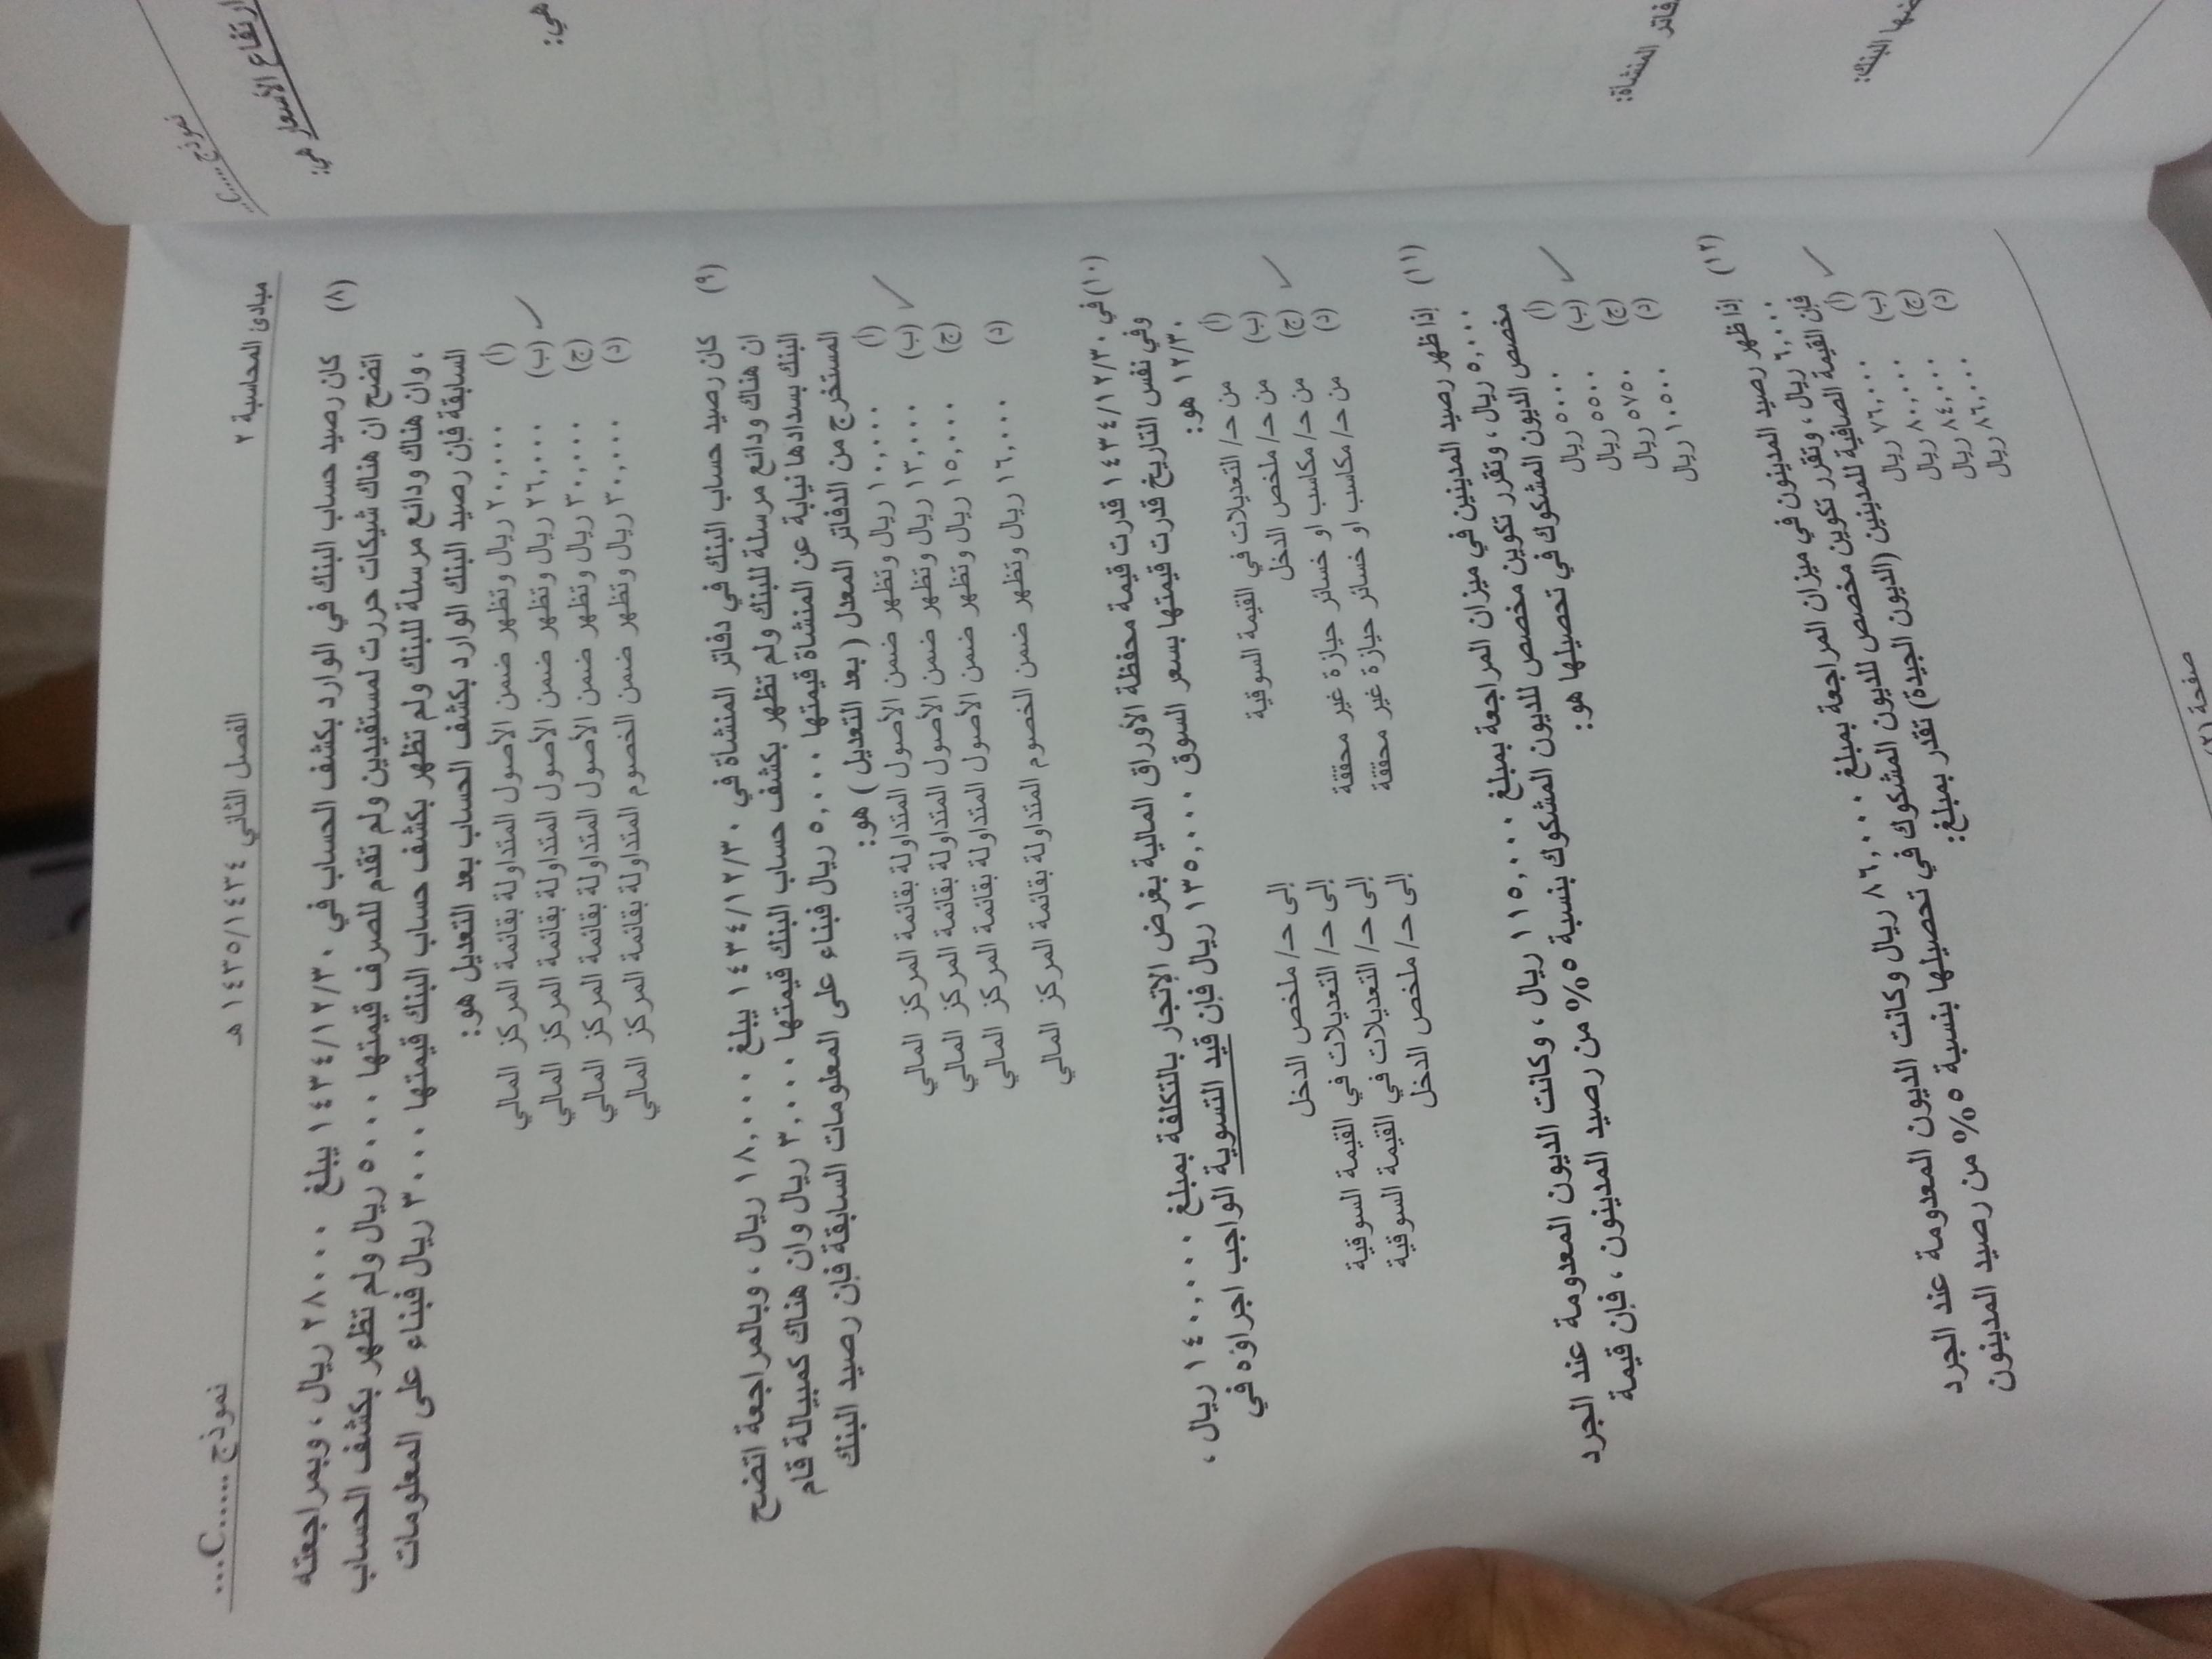 مبادئ المحاسبة ٢ الفصل الثاني ١٤٣٥/١٤٣٤ هـ نموذج ......C...
(٨) كان رصيد حساب البنك في الوارد بكشف الحساب في ١٤٣٤/١٢/٣٠ يبلغ ٢٨٠٠٠ ريال ، وبمراجعته
اتضح ان هناك شيكات حررت لمستفيدين ولم تقدم للصرف قيمتها ٥٠٠٠ ريال ولم تظهر بكشف الحساب
، وان هناك ودائع مرسلة للبنك ولم تظهر بكشف حساب البنك قيمتها ٣٠٠٠ ريال فبناء على المعلومات
السابقة فإن رصيد البنك الوارد بكشف الحساب بعد التعديل هو:
(أ) ٢٠,٠٠٠ ريال وتظهر ضمن الأصول المتداولة بقائمة المركز المالي
(ب) ٢٦,٠٠٠ ريال وتظهر ضمن الأصول المتداولة بقائمة المركز المالي
(ج) ٣٠,٠٠٠ ريال وتظهر ضمن الأصول المتداولة بقائمة المركز المالي
(د) ٣٠,٠٠٠ ريال وتظهر ضمن الخصوم المتداولة بقائمة المركز المالي
(٩) كان رصيد حساب البنك في دفاتر المنشأة في ١٤٣٤/١٢/٣٠ يبلغ ١٨,٠٠٠ ريال ، وبالمراجعة اتضح
ان هناك ودائع مرسلة للبنك ولم تظهر بكشف حساب البنك قيمتها ٣,٠٠٠ ريال وان هناك كمبيالة قام
البنك بسدادها نيابة عن المنشأة قيمتها ٥,٠٠٠ ريال فبناء على المعلومات السابقة فإن رصيد البنك
المستخرج من الدفاتر المعدل ( بعد التعديل ) هو:
(أ) ١٠,٠٠٠ ريال وتظهر ضمن الأصول المتداولة بقائمة المركز المالي
(ب) ١٣,٠٠٠ ريال وتظهر ضمن الأصول المتداولة بقائمة المركز المالي
(ج) ١٥,٠٠٠ ريال وتظهر ضمن الأصول المتداولة بقائمة المركز المالي
(د) ١٦,٠٠٠ ريال وتظهر ضمن الخصوم المتداولة بقائمة المركز المالي
(١٠) في ١٤٣٤/١٢/٣٠ قدرت قيمة محفظة الأوراق المالية بغرض الإتجار بالتكلفة بمبلغ ١٤٠,٠٠٠ ريال ،
وفي نفس التاريخ قدرت قيمتها بسعر السوق ١٣٥,٠٠٠ ريال فإن قيد التسوية الواجب اجراؤه في
١٢/٣٠ هو:
(أ) من حـ/ التعديلات في القيمة السوقية إلى حـ/ ملخص الدخل
(ب) من حـ/ ملخص الدخل إلى حـ/ التعديلات في القيمة السوقية
(ج) من حـ/ مكاسب او خسائر حيازة غير محققة إلى حـ/ التعديلات في القيمة السوقية
(د) من حـ/ مكاسب او خسائر حيازة غير محققة إلى حـ/ ملخص الدخل
(١١) إذا ظهر رصيد المدينين في ميزان المراجعة بمبلغ ١١٥,٠٠٠ ريال ، وكانت الديون المعدومة عند الجرد
٥,٠٠٠ ريال ، وتقرر تكوين مخصص للديون المشكوك بنسبة ٥% من رصيد المدينون ، فإن قيمة
مخصص الديون المشكوك في تحصيلها هو:
(أ) ٥٠٠٠ ريال
(ب) ٥٥٠٠ ريال
(ج) ٥٧٥٠ ريال
(د) ١٠٥٠٠ ريال
(١٢) إذا ظهر رصيد المدينون في ميزان المراجعة بمبلغ ٨٦,٠٠٠ ريال وكانت الديون المعدومة عند الجرد
٦,٠٠٠ ريال ، وتقرر تكوين مخصص للديون المشكوك في تحصيلها بنسبة ٥% من رصيد المدينون
فإن القيمة الصافية للمدينين (الديون الجيدة) تقدر بمبلغ:
(أ) ٧٦,٠٠٠ ريال
(ب) ٨٠,٠٠٠ ريال
(ج) ٨٤,٠٠٠ ريال
(د) ٨٦,٠٠٠ ريال
نموذج .....C...
ارتفاع الأسعار هي:
هي:
المنشأة:
البنك: